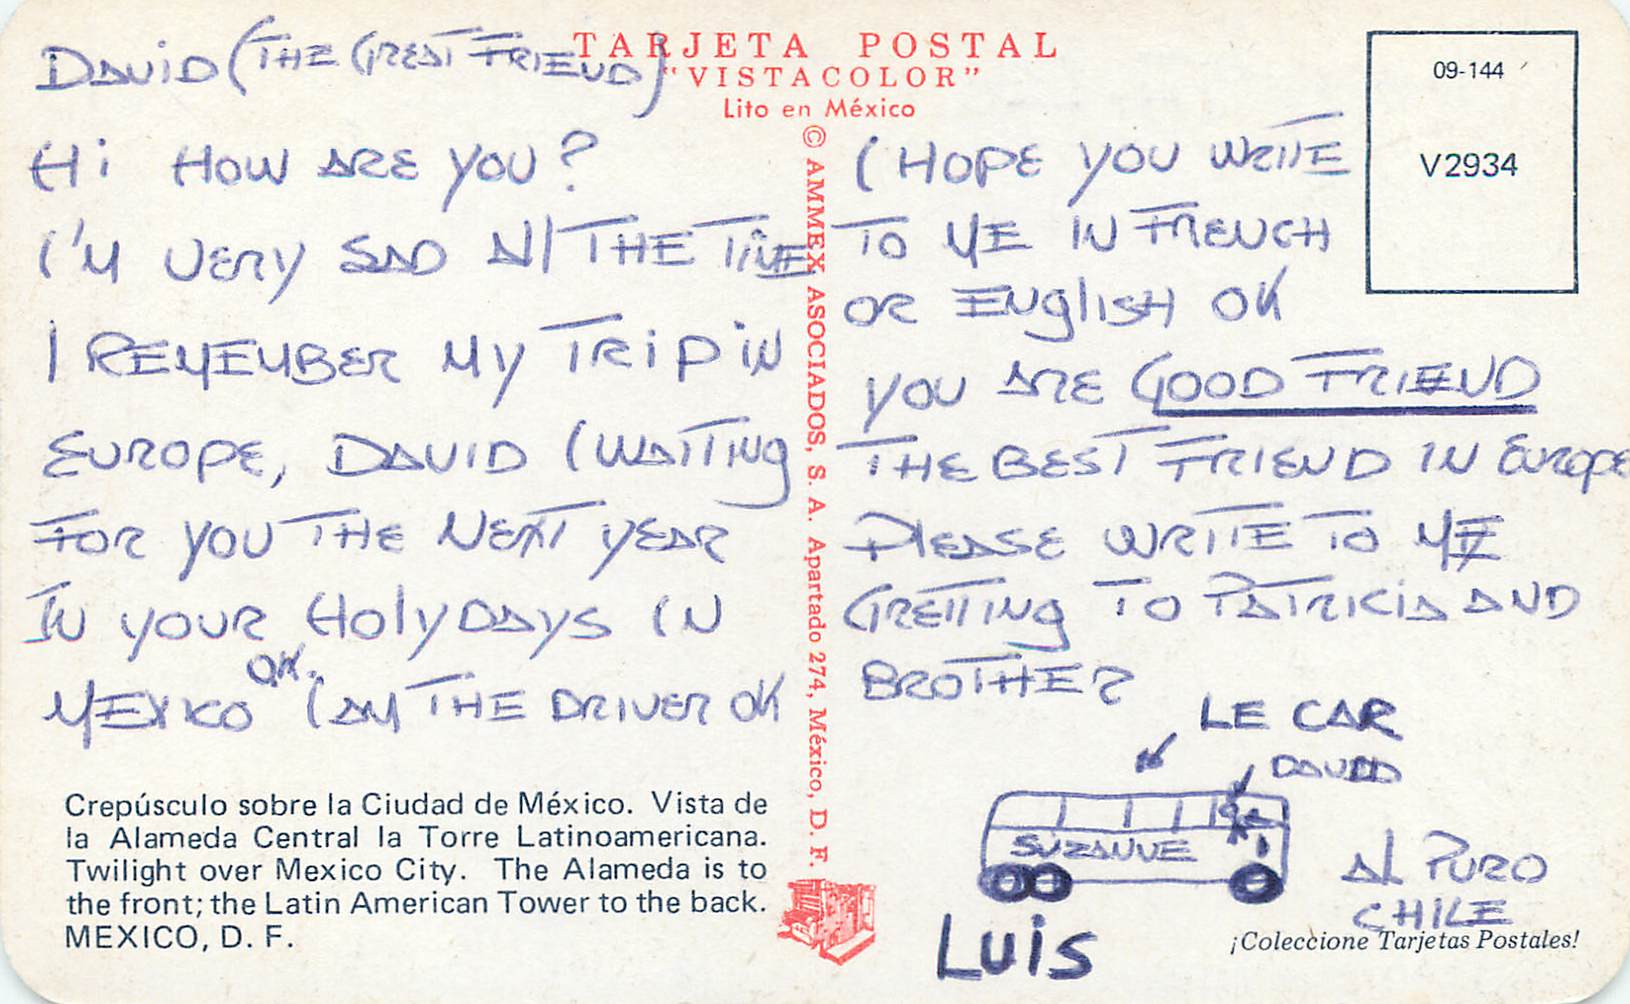 TARJETA POSTAL
"VISTACOLOR"
Lito en México
09-144
V2934
DAVID (THE GREAT FRIEND)
Hi HOW ARE YOU?
I'M VERY SAD All THE TIME
I REMEMBER MY TRIP IN
EUROPE, DAVID I WAITING
FOR YOU THE NEXT YEAR
IN YOUR HOlyDAYS IN
MEXICO OK. I AM THE DRIVER OK
Crepúsculo sobre la Ciudad de México. Vista de
la Alameda Central la Torre Latinoamericana.
Twilight over Mexico City. The Alameda is to
the front; the Latin American Tower to the back.
MEXICO, D. F.
© AMMEX ASOCIADOS, S. A. Apartado 274, México, D. F.
I HOPE YOU WRITE
TO ME IN FRENCH
OR ENglISH OK
YOU ARE GOOD FRIEND
THE BEST FRIEND IN EUROPE
PLEASE WRITE TO ME
GREITING TO PATRICIA AND
BROTHER
LE CAR
DAVID
SUZANNE
AL PURO
CHILE
Luis
¡Coleccione Tarjetas Postales!